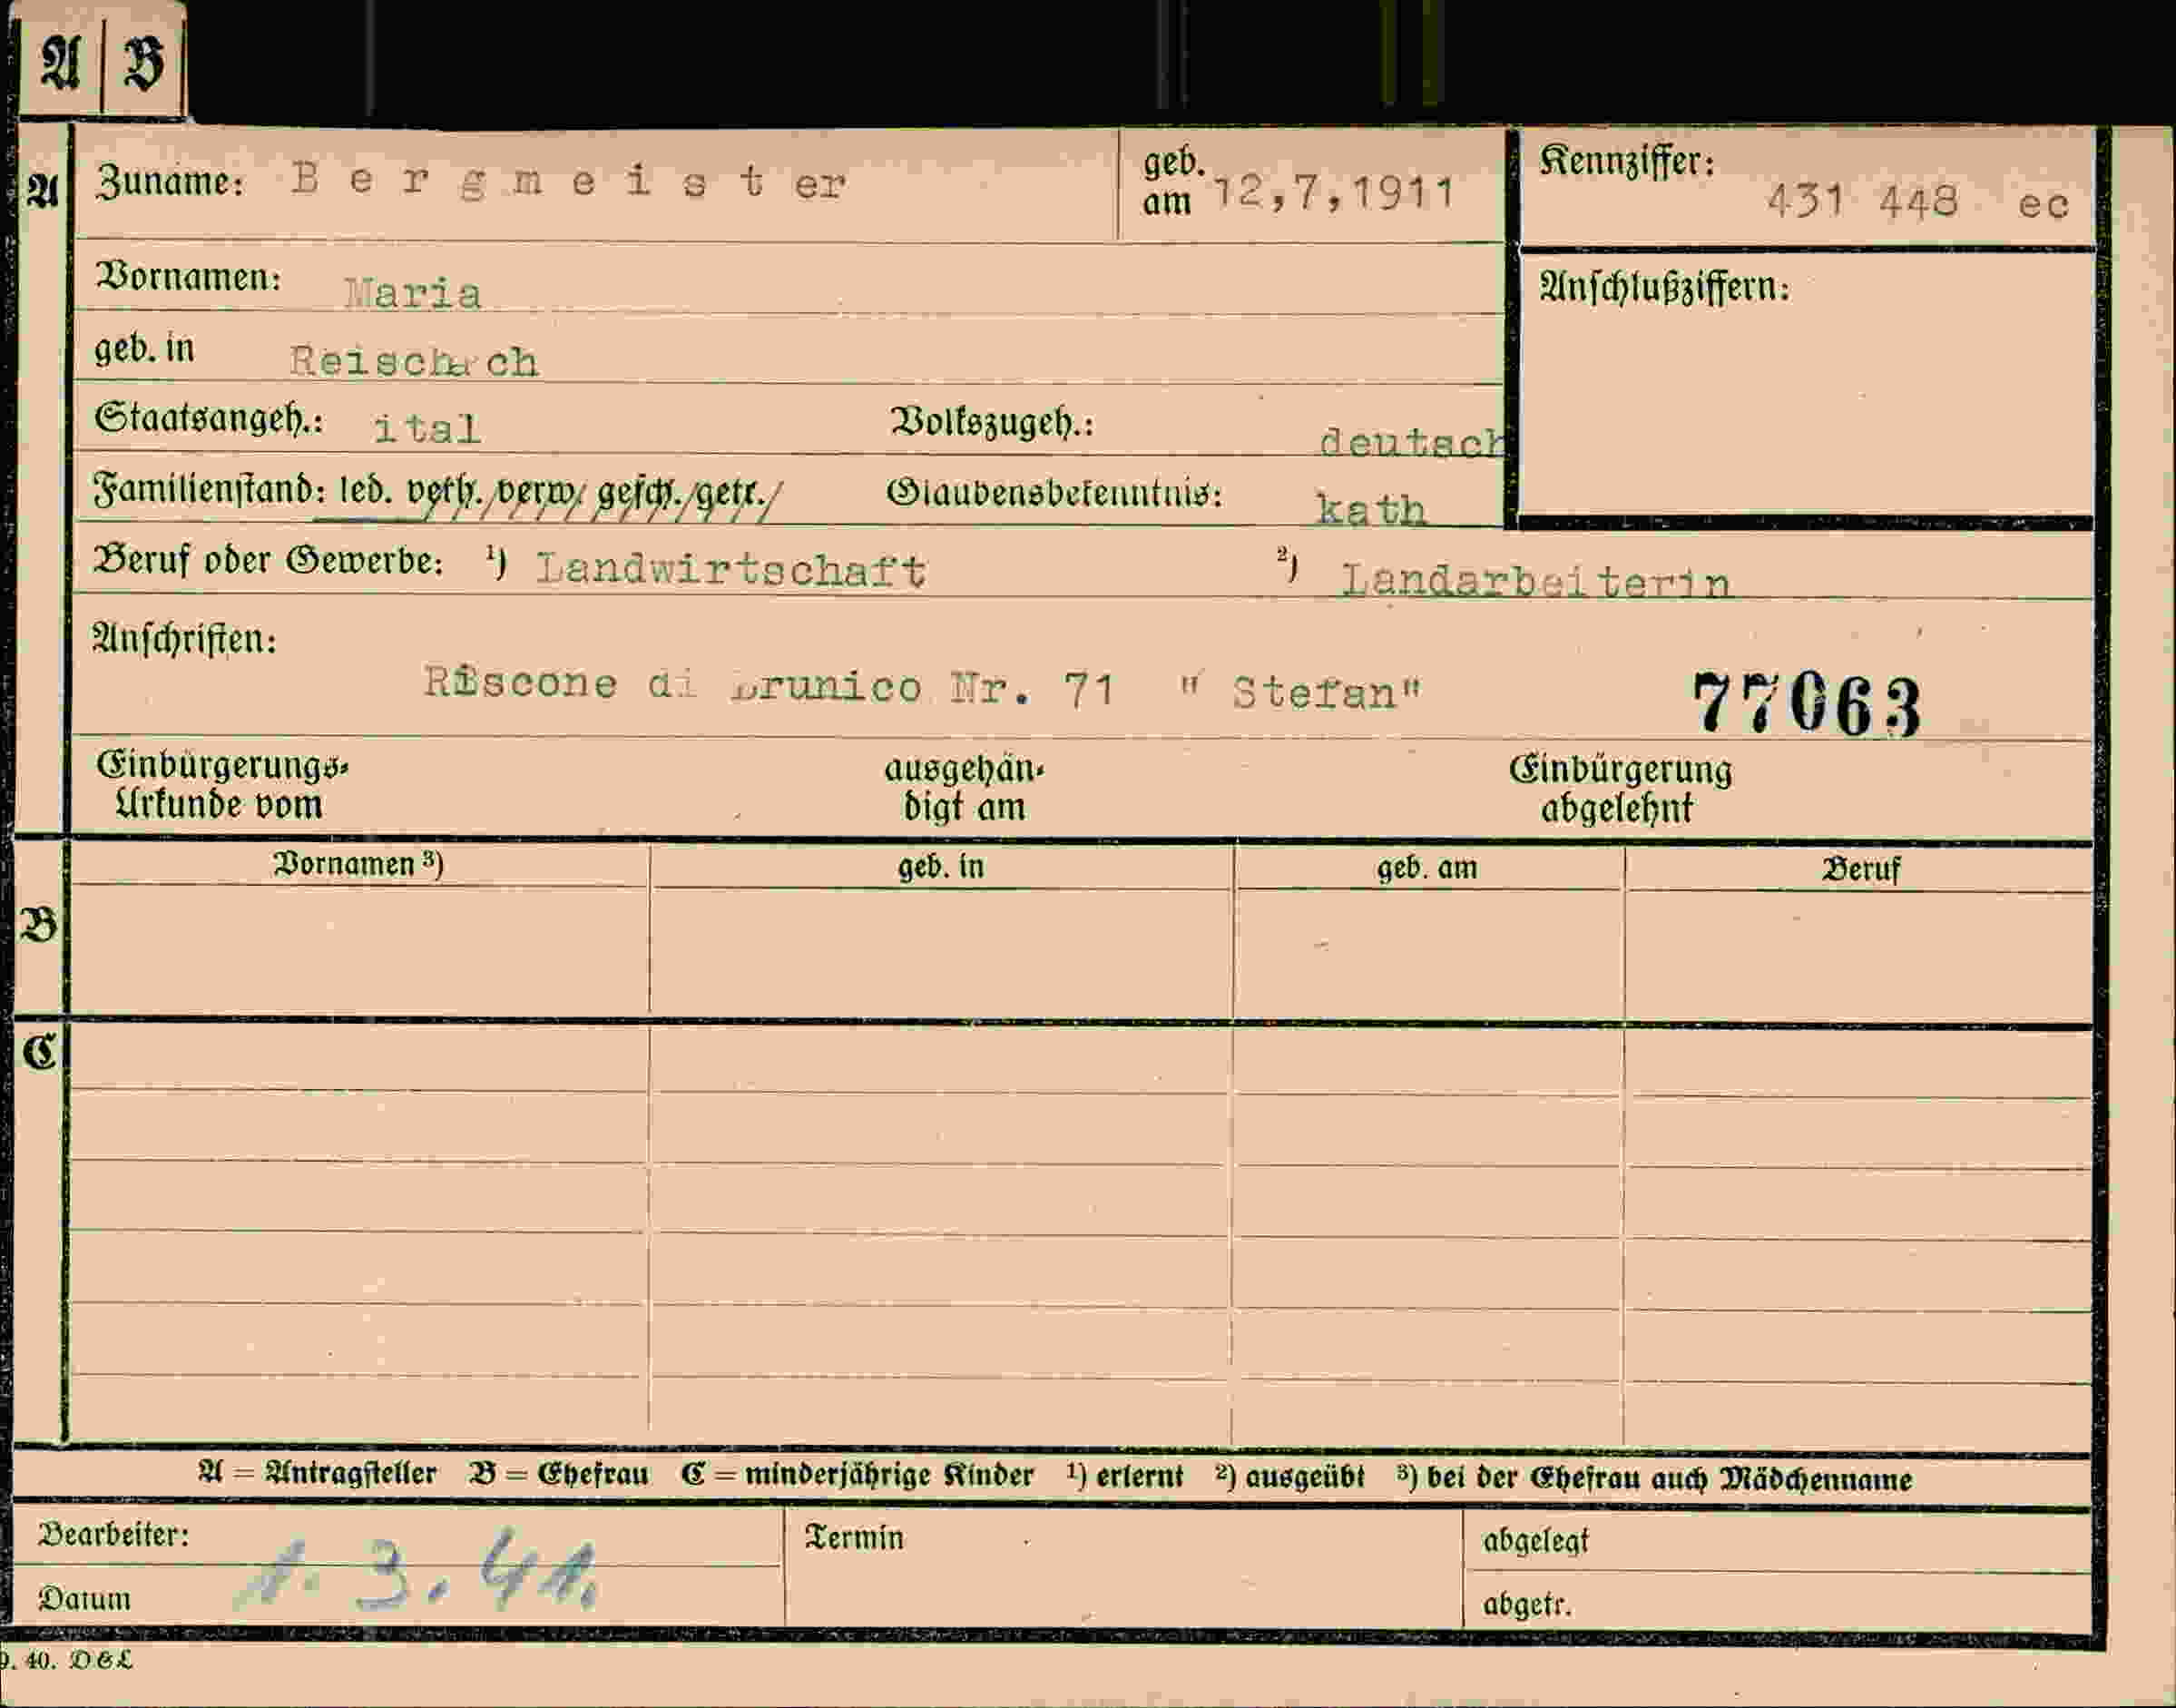 A B
A Zuname: Bergmeister geb. am 12,7,1911 Kennziffer: 431 448 ec
Vornamen: Maria Anschlußziffern:
geb. in Reischach
Staatsangeh.: ital Volkszugeh.: deutsch
Familienstand: led. verh. verw. gesch. getr. Glaubensbekenntnis: kath
Beruf oder Gewerbe: ¹) Landwirtschaft ²) Landarbeiterin
Anschriften:
Riscone di Brunico Nr. 71 " Stefan" 77063
Einbürgerungs- ausgehän- Einbürgerung
Urkunde vom digt am abgelehnt
Vornamen ³) geb. in geb. am Beruf
B
C
A = Antragsteller B = Ehefrau C = minderjährige Kinder ¹) erlernt ²) ausgeübt ³) bei der Ehefrau auch Mädchenname
Bearbeiter: Termin abgelegt
1. 3. 41.
Datum abgetr.
9. 40. D&L